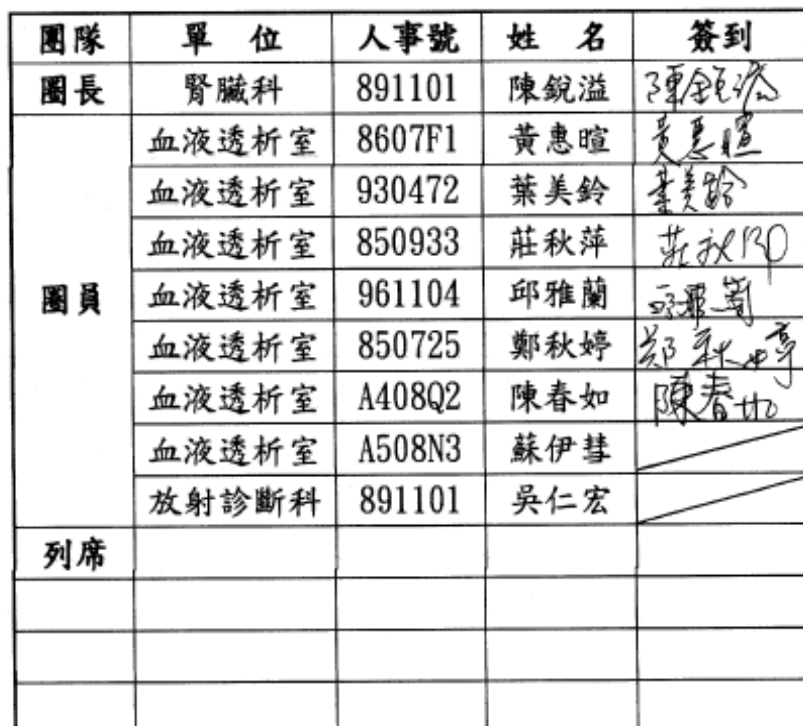 團隊 單位 人事號 姓名 簽到
圈長 腎臟科 891101 陳銳溢 陳銳溢
血液透析室 8607F1 黃惠暄 黃惠暄
血液透析室 930472 葉美鈴 葉美鈴
血液透析室 850933 莊秋萍 莊秋
圈員 血液透析室 961104 邱雅蘭
血液透析室 850725 鄭秋婷 郑秋婷
血液透析室 A408Q2 陳春如 陳春如
血液透析室 A508N3 蘇伊彗
放射診斷科 891101 吳仁宏
列席